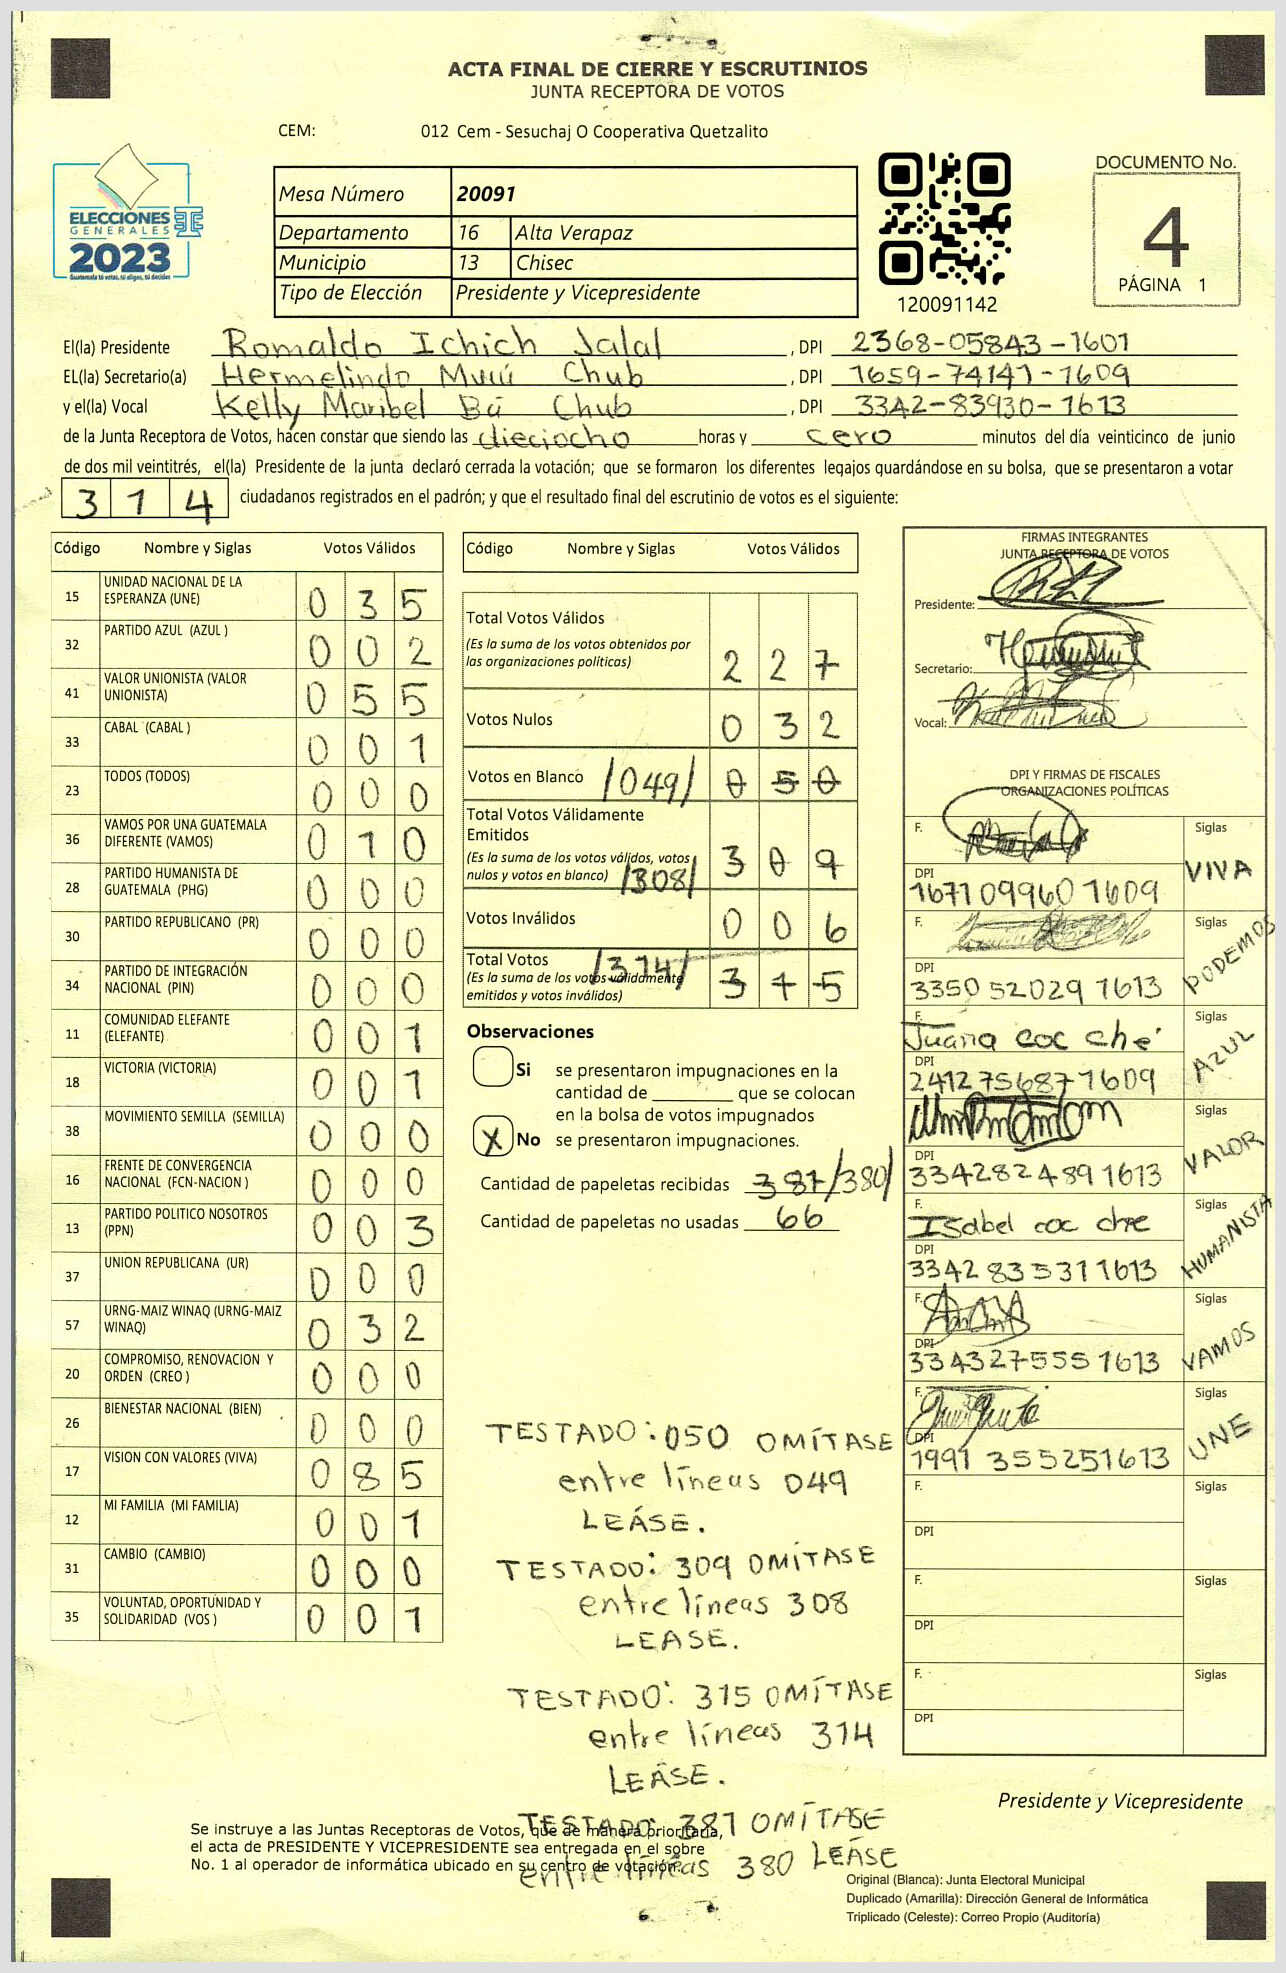 ACTA FINAL DE CIERRE Y ESCRUTINIOS
JUNTA RECEPTORA DE VOTOS
CEM: 012 Cem - Sesuchaj O Cooperativa Quetzalito
ELECCIONES
GENERALES
2023
Guatemala tú votas, tú eliges, tú decides
Mesa Número 20091
Departamento 16 Alta Verapaz
Municipio 13 Chisec
Tipo de Elección Presidente y Vicepresidente
120091142
DOCUMENTO No.
4
PÁGINA 1
El(la) Presidente Romaldo Ichich Jalal , DPI 2368-05843-1601
EL(la) Secretario(a) Hermelindo Muú Chub , DPI 1659-74141-1609
y el(la) Vocal Kelly Maribel Bá Chub , DPI 3342-83930-1613
de la Junta Receptora de Votos, hacen constar que siendo las dieciocho horas y cero minutos del día veinticinco de junio
de dos mil veintitrés, el(la) Presidente de la junta declaró cerrada la votación; que se formaron los diferentes legajos guardándose en su bolsa, que se presentaron a votar
314 ciudadanos registrados en el padrón; y que el resultado final del escrutinio de votos es el siguiente:
Código Nombre y Siglas Votos Válidos
15 UNIDAD NACIONAL DE LA ESPERANZA (UNE) 035
32 PARTIDO AZUL (AZUL ) 002
41 VALOR UNIONISTA (VALOR UNIONISTA) 055
33 CABAL (CABAL ) 001
23 TODOS (TODOS) 000
36 VAMOS POR UNA GUATEMALA DIFERENTE (VAMOS) 010
28 PARTIDO HUMANISTA DE GUATEMALA (PHG) 000
30 PARTIDO REPUBLICANO (PR) 000
34 PARTIDO DE INTEGRACIÓN NACIONAL (PIN) 000
11 COMUNIDAD ELEFANTE (ELEFANTE) 001
18 VICTORIA (VICTORIA) 001
38 MOVIMIENTO SEMILLA (SEMILLA) 000
16 FRENTE DE CONVERGENCIA NACIONAL (FCN-NACION ) 000
13 PARTIDO POLITICO NOSOTROS (PPN) 003
37 UNION REPUBLICANA (UR) 000
57 URNG-MAIZ WINAQ (URNG-MAIZ WINAQ) 032
20 COMPROMISO, RENOVACION Y ORDEN (CREO ) 000
26 BIENESTAR NACIONAL (BIEN) 000
17 VISION CON VALORES (VIVA) 085
12 MI FAMILIA (MI FAMILIA) 001
31 CAMBIO (CAMBIO) 000
35 VOLUNTAD, OPORTUNIDAD Y SOLIDARIDAD (VOS ) 001
Código Nombre y Siglas Votos Válidos
Total Votos Válidos
(Es la suma de los votos obtenidos por
las organizaciones políticas) 227
Votos Nulos 032
Votos en Blanco /049/ 050
Total Votos Válidamente
Emitidos
(Es la suma de los votos válidos, votos
nulos y votos en blanco) /308/ 309
Votos Inválidos 006
Total Votos /314/ 315
(Es la suma de los votos válidamente
emitidos y votos inválidos)
Observaciones
Si se presentaron impugnaciones en la
cantidad de ________ que se colocan
en la bolsa de votos impugnados
X No se presentaron impugnaciones.
Cantidad de papeletas recibidas 381/380/
Cantidad de papeletas no usadas 66
TESTADO: 050 OMÍTASE
entre líneas 049
LEÁSE.
TESTADO: 309 OMÍTASE
entre líneas 308
LEASE.
TESTADO: 315 OMÍTASE
entre líneas 314
LEÁSE.
TESTADO: 381 OMÍTASE
entre líneas 380 LEÁSE
FIRMAS INTEGRANTES
JUNTA RECEPTORA DE VOTOS
Presidente:
Secretario:
Vocal:
DPI Y FIRMAS DE FISCALES
ORGANIZACIONES POLÍTICAS
F. Siglas
DPI VIVA
1671099601609
F. Siglas
DPI PODEMOS
3350520291613
F. Siglas
Juana coc ché
DPI AZUL
2412756871609
Siglas
DPI VALOR
3342824891613
F. Siglas
Isabel coc che
DPI HUMANISTA
3342835311613
F. Siglas
DPI VAMOS
3343275551613
F. Siglas
DPI UNE
1991355251613
F. Siglas
DPI
F. Siglas
DPI
F. Siglas
DPI
Presidente y Vicepresidente
Se instruye a las Juntas Receptoras de Votos, que de manera prioritaria,
el acta de PRESIDENTE Y VICEPRESIDENTE sea entregada en el sobre
No. 1 al operador de informática ubicado en su centro de votación.
Original (Blanca): Junta Electoral Municipal
Duplicado (Amarilla): Dirección General de Informática
Triplicado (Celeste): Correo Propio (Auditoría)